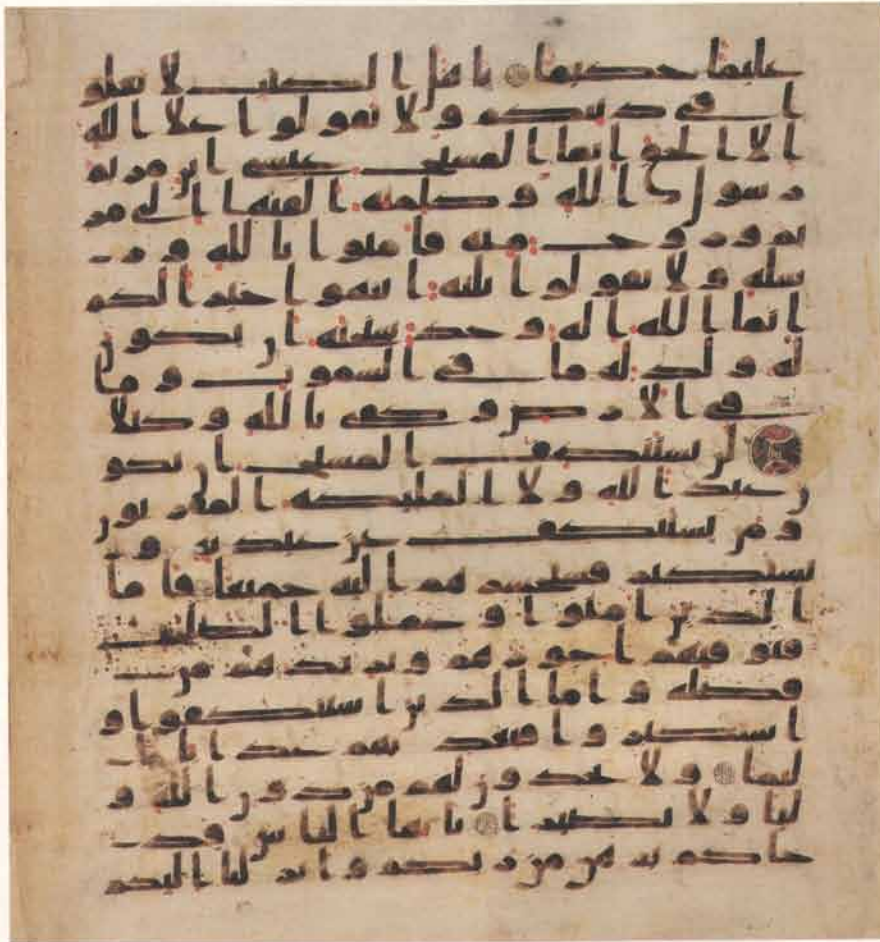 عليما حكيما ياهل الكتب لا تغلو
ا في دينكم ولا تقولوا علا الله
الا الحق انما المسيح عيسى ابن مريم
رسول الله وكلمته القيها الى مر
يم وروح منه فامنوا بالله ور
سله ولا تقولوا ثلثة انتهوا خيرا لكم
انما الله اله وحد سبحنه ان يكون
له ولد له ما في السموت وما
في الارض وكفى بالله وكيلا
لن يستنكف المسيح ان يكو
ن عبدا لله ولا الملئكة المقربون
ومن يستنكف عن عبدته و
يستكبر فسيحشرهم اليه جميعا فاما
الذين امنوا وعملوا الصلحت
فيوفيهم اجورهم ويزيدهم من
فضله واما الذين استنكفوا و
استكبروا فيعذبهم عذابا ا
ليما ولا يجدون لهم من دون الله و
ليا ولا نصيرا يايها الناس قد
جاكم برهن من ربكم وانزلنا اليكم